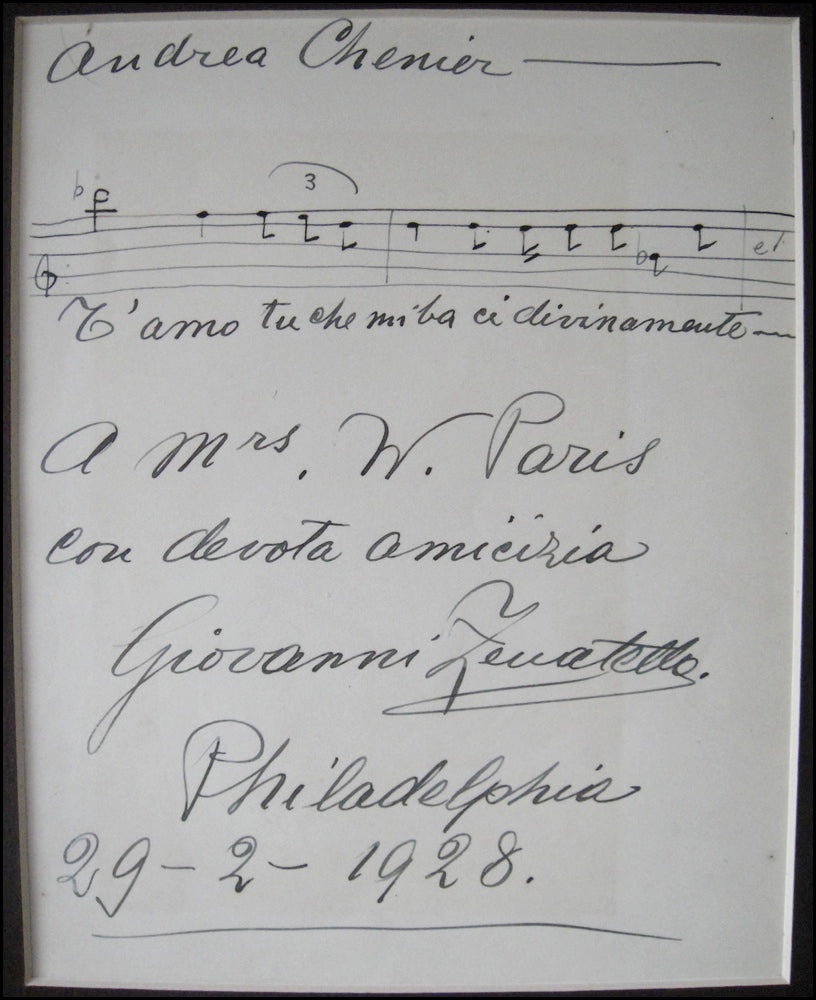 Andrea Chenier
3
T'amo tu che mi ba ci divinamente
A Mrs. W. Paris
con devota amicizia
Giovanni Zenatello.
Philadelphia
29-2-1928.